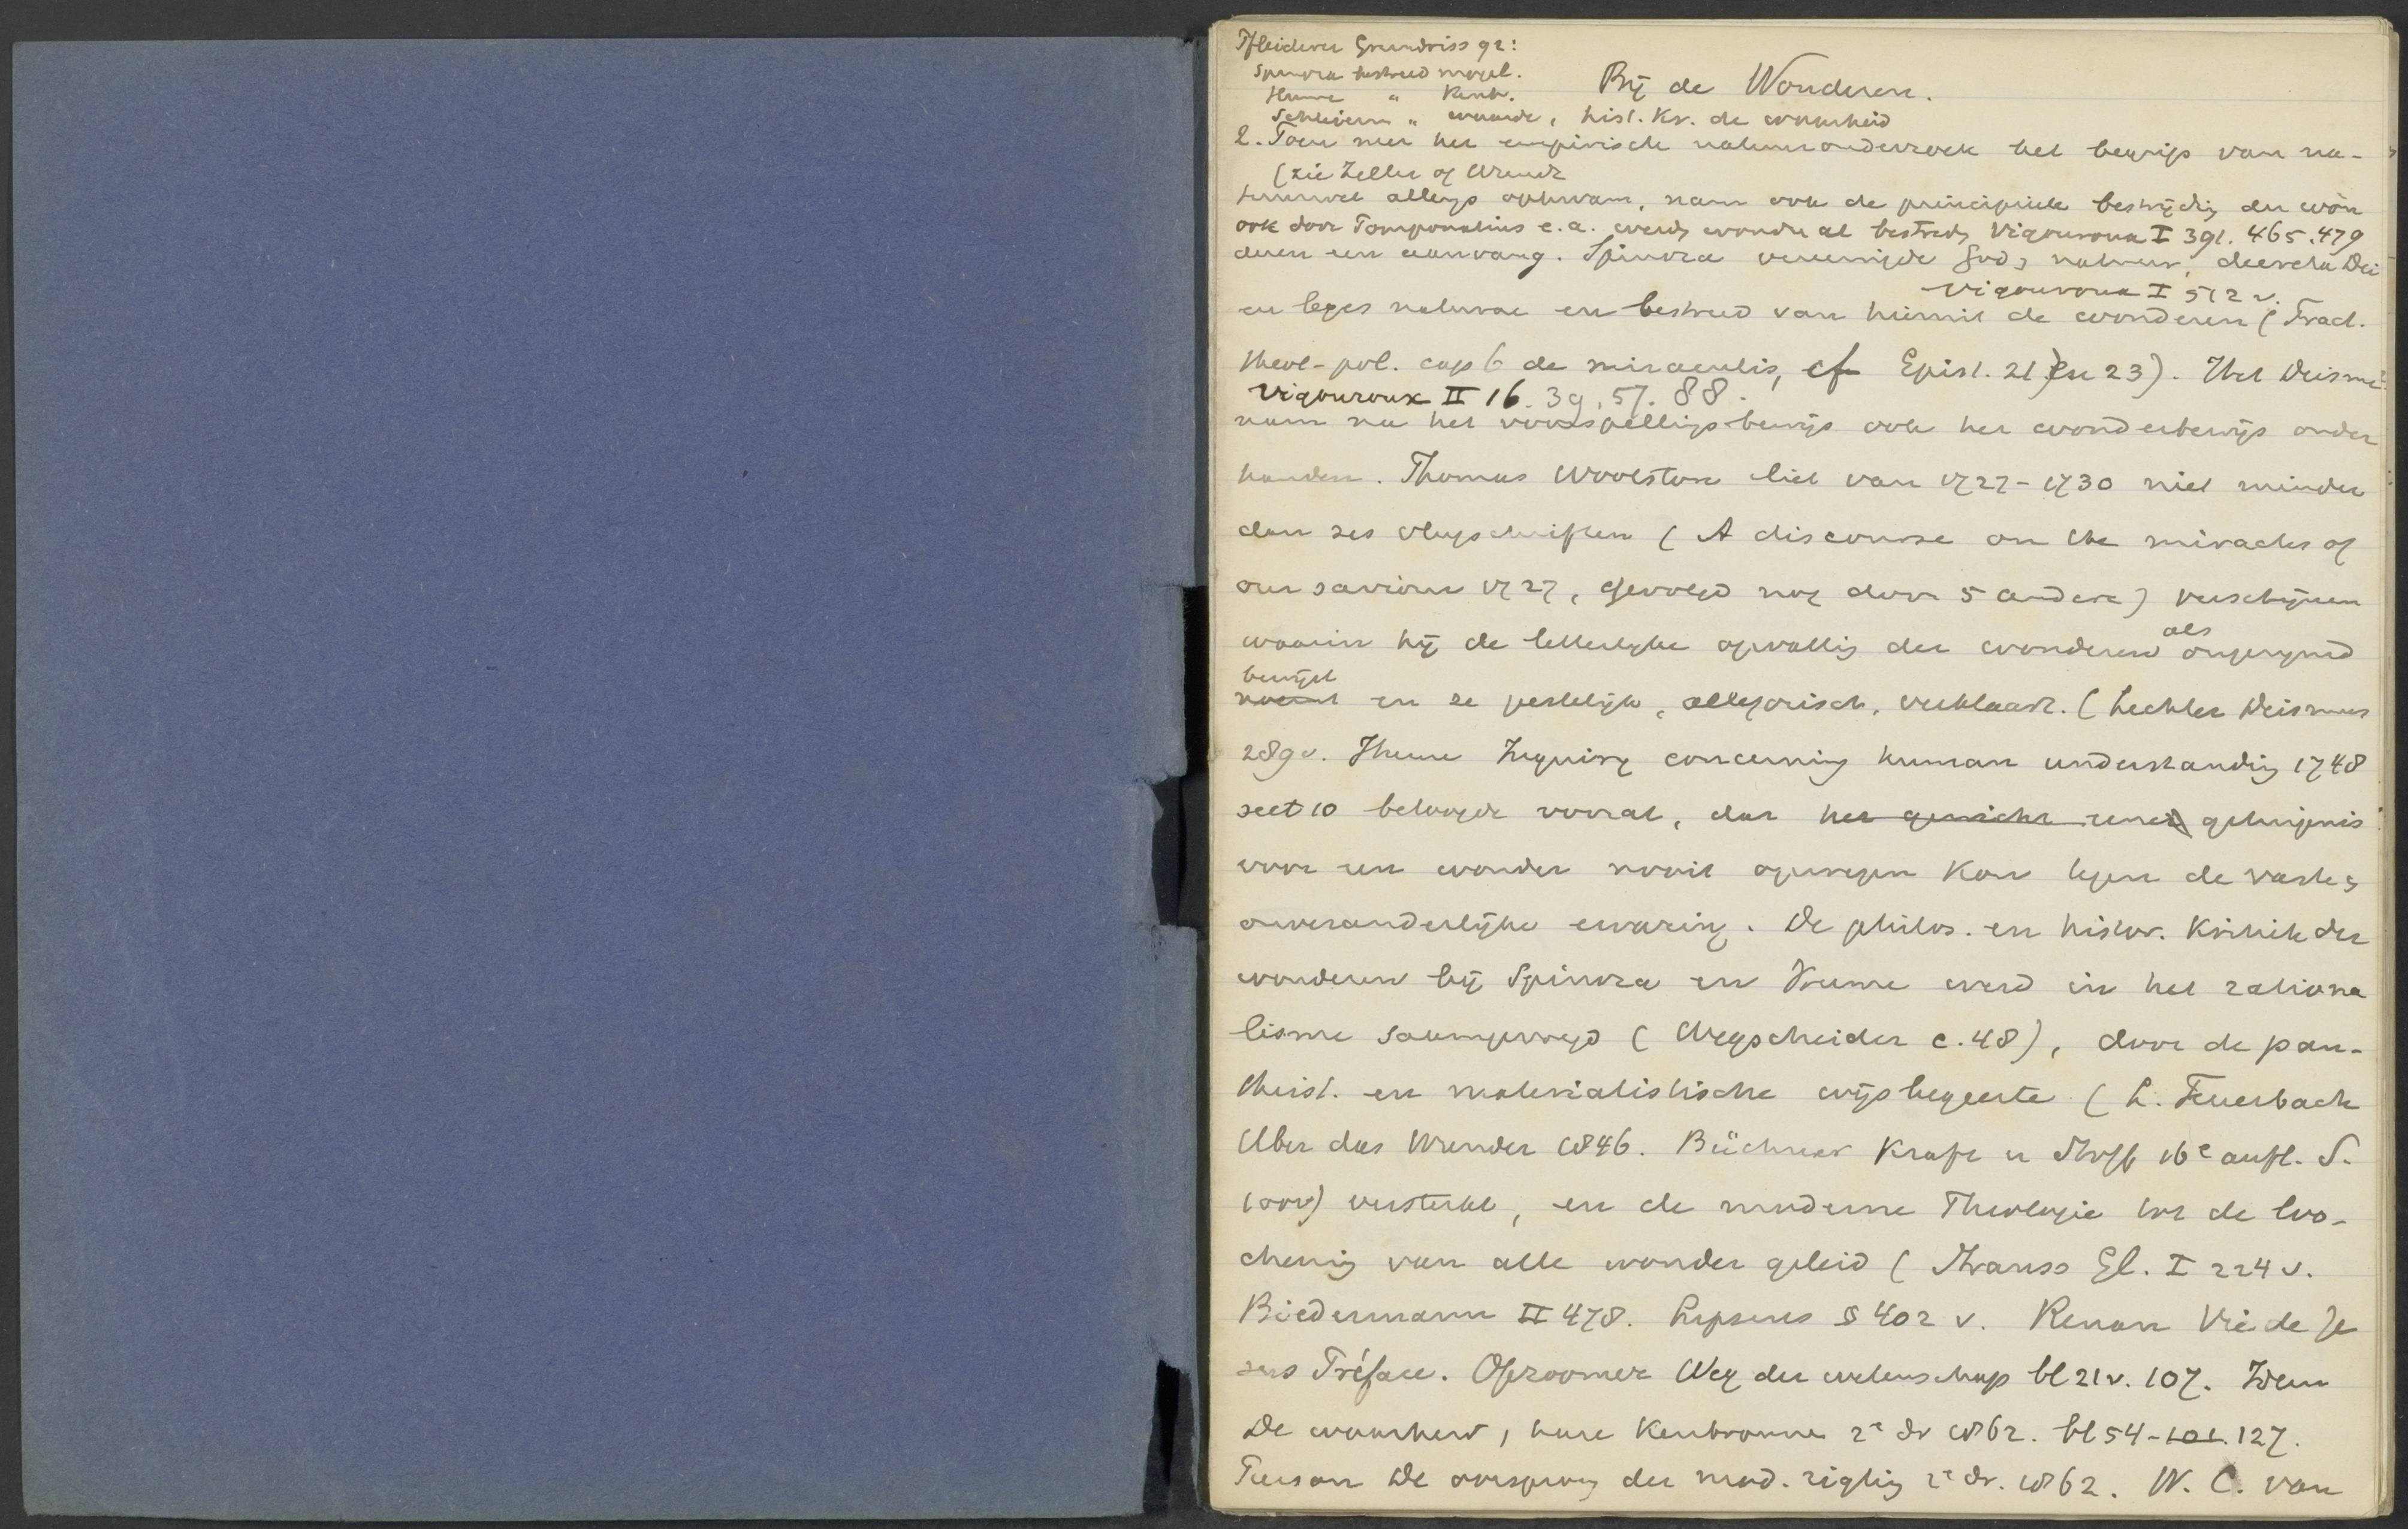 Pfleiderer Grundriss 92:
Spinoza bestreed mogel.
Hume " Kenb.
Bij de Wonderen.
Schleierm " waarde, hist. Kr. de waarheid
2. Toen met het empirisch natuuronderzoek het begrip van na-
(zie Zeller of Arendt
tuurwet allengs opkwam, nam ook de principieele bestrijding der won
ook door Pomponatius e.a. werd wonder al bestred, Vigouroux I 391. 465. 479
deren een aanvang. Spinoza vereenigde God & natuur, decreta Dei
Vigouroux I 512 v.
en leges naturae en bestreed van hieruit de wonderen (Tract.
theol-pol. cap 6 de miraculis, cf Epist. 21 en 23). Het Deisme
Vigouroux II 16. 39. 57. 88.
nam na het voorspellingsbewijs ook het wonderbewijs onder
handen. Thomas Woolston liet van 1727-1730 niet minder
dan zes vlugschriften (A discourse on the miracles of
our saviour 1727, gevolgd nog door 5 andere) verschijnen
waarin hij de letterlijke opvatting der wonderen als ongerijmd
bewijst
noemt en ze geestelijk, allegorisch, verklaart. (Lechler Deismus
289 v. Hume Inquiry concerning human understanding 1748
sect 10 betoogde vooral, dat het gewicht eener getuigenis
voor een wonder nooit opwegen kon tegen de vaste &
onveranderlijke ervaring. De philos. en histor. Kritiek der
wonderen bij Spinoza en Hume werd in het rationa
lisme saamgevoegd (Wegscheider c. 48), door de pan-
theist. en materialistische wijsbegeerte (L. Feuerbach
Uber das Wunder 1846. Büchner Kraft u Stoff 16e aufl. S.
100 v) versterkt, en de moderne Theologie tot de loo-
chening van alle wonder geleid (Strauss Gl. I 224 v.
Biedermann II 478. Lipsius § 402 v. Renan Vie de Je
sus Préface. Opzoomer Weg der wetenschap bl 21 v. 107. Idem
De waarheid, hare Kenbronnen 2e dr 1862. bl 54-101. 127.
Pierson De oorsprong der mod. rigting 2e dr. 1862. W. C. van